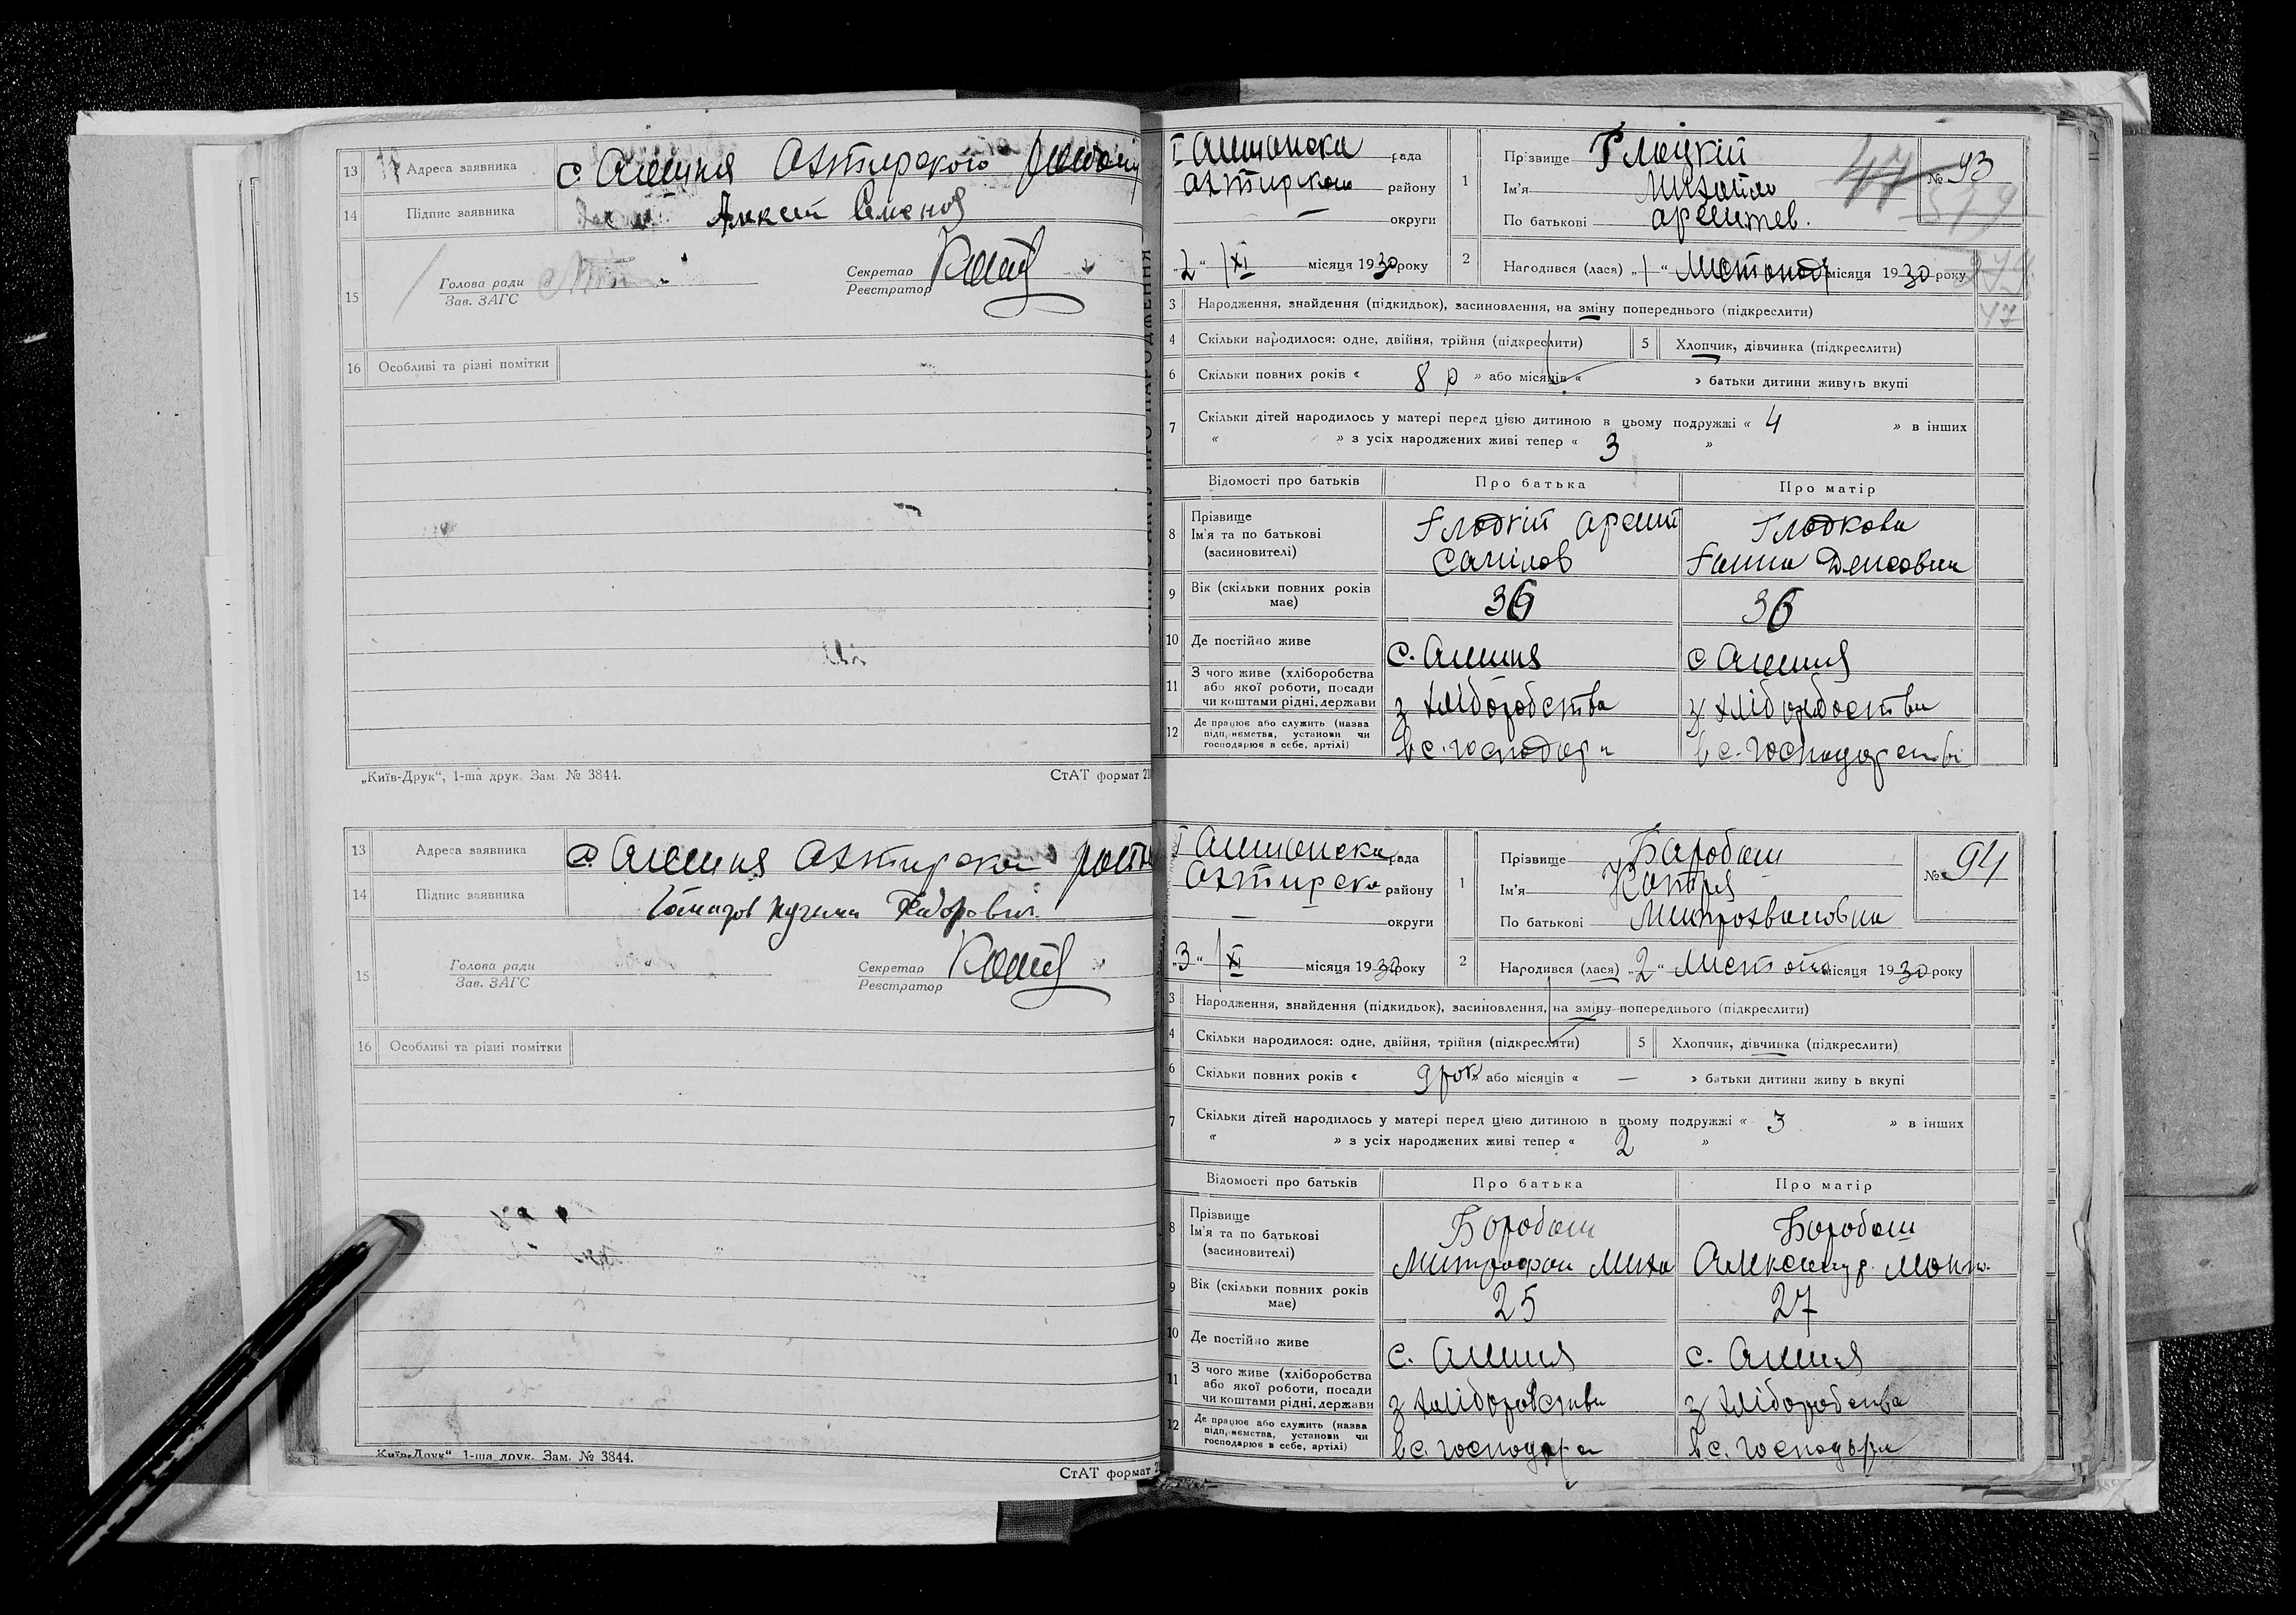 13 Адреса заявника с. Алешня Ахтирского
14 Підпис заявника Алексей Семенов
15 Голова ради Зав. ЗАГС Секретар Реєстратор
16 Особливі та різні помітки
„Київ-Друк“, 1-ша друк. Зам. № 3844. СтАТ формат
13 Адреса заявника с. Алешня Ахтирско
14 Підпис заявника Федорович
15 Голова ради Зав. ЗАГС Секретар Реєстратор
16 Особливі та різні помітки
Київ-Друк“, 1-ша друк. Зам. № 3844.
СтАТ формат
I Алешанска рада
Ахтирском району
— округи
„2“ XI місяця 1930 року
1 Прізвище Гладкій
Ім'я Михайло
По батькові Арентев.
№ 93
47
2 Народився (лася) „1“ Листопад місяця 1930 року
3 Народження, знайдення (підкидьок), засиновлення, на зміну попереднього (підкреслити)
47
4 Скільки народилося: одне, двійня, трійня (підкреслити) 5 Хлопчик, дівчинка (підкреслити)
6 Скільки повних років « 8 р » або місяців « » батьки дитини живуть вкупі
7 Скільки дітей народилось у матері перед цією дитиною в цьому подружжі « 4 » в інших
« » з усіх народжених живі тепер « 3 »
Відомості про батьків Про батька Про матір
8 Прізвище Ім'я та по батькові (засиновителі) Гладкій Самілов Гладкова Ганна Денсовна
9 Вік (скільки повних років має) 36 36
10 Де постійно живе с. Алешня с Алешня
11 З чого живе (хліборобства або якої роботи, посади чи коштами рідні, держави з хліборобства з хліборобства
12 Де працює або служить (назва підприємства, установи чи господарює в себе, артілі) в с. господар в с. господарстві
I Алешанска рада
Ахтирско району
— округи
„3“ XI місяця 1930 року
1 Прізвище Баробаш
Ім'я Катря
По батькові Митрохвановна
№ 94
2 Народився (лася) „2“ Листопа місяця 1930 року
3 Народження, знайдення (підкидьок), засиновлення, на зміну попереднього (підкреслити)
4 Скільки народилося: одне, двійня, трійня (підкреслити) 5 Хлопчик, дівчинка (підкреслити)
6 Скільки повних років « 9 рок » або місяців « — » батьки дитини живу ь вкупі
7 Скільки дітей народилось у матері перед цією дитиною в цьому подружжі « 3 » в інших
« » з усіх народжених живі тепер « 2 »
Відомості про батьків Про батька Про матір
8 Прізвище Ім'я та по батькові (засиновителі) Боробаш Митрофан Миха Боробаш Александр.
9 Вік (скільки повних років має) 25 27
10 Де постійно живе с. Алешня с. Алешня
11 З чого живе (хліборобства або якої роботи, посади чи коштами рідні, держави з хліборобства з хліборобства
12 Де працює або служить (назва підприємства, установи чи господарює в себе, артілі) в с. господар в с. господарн